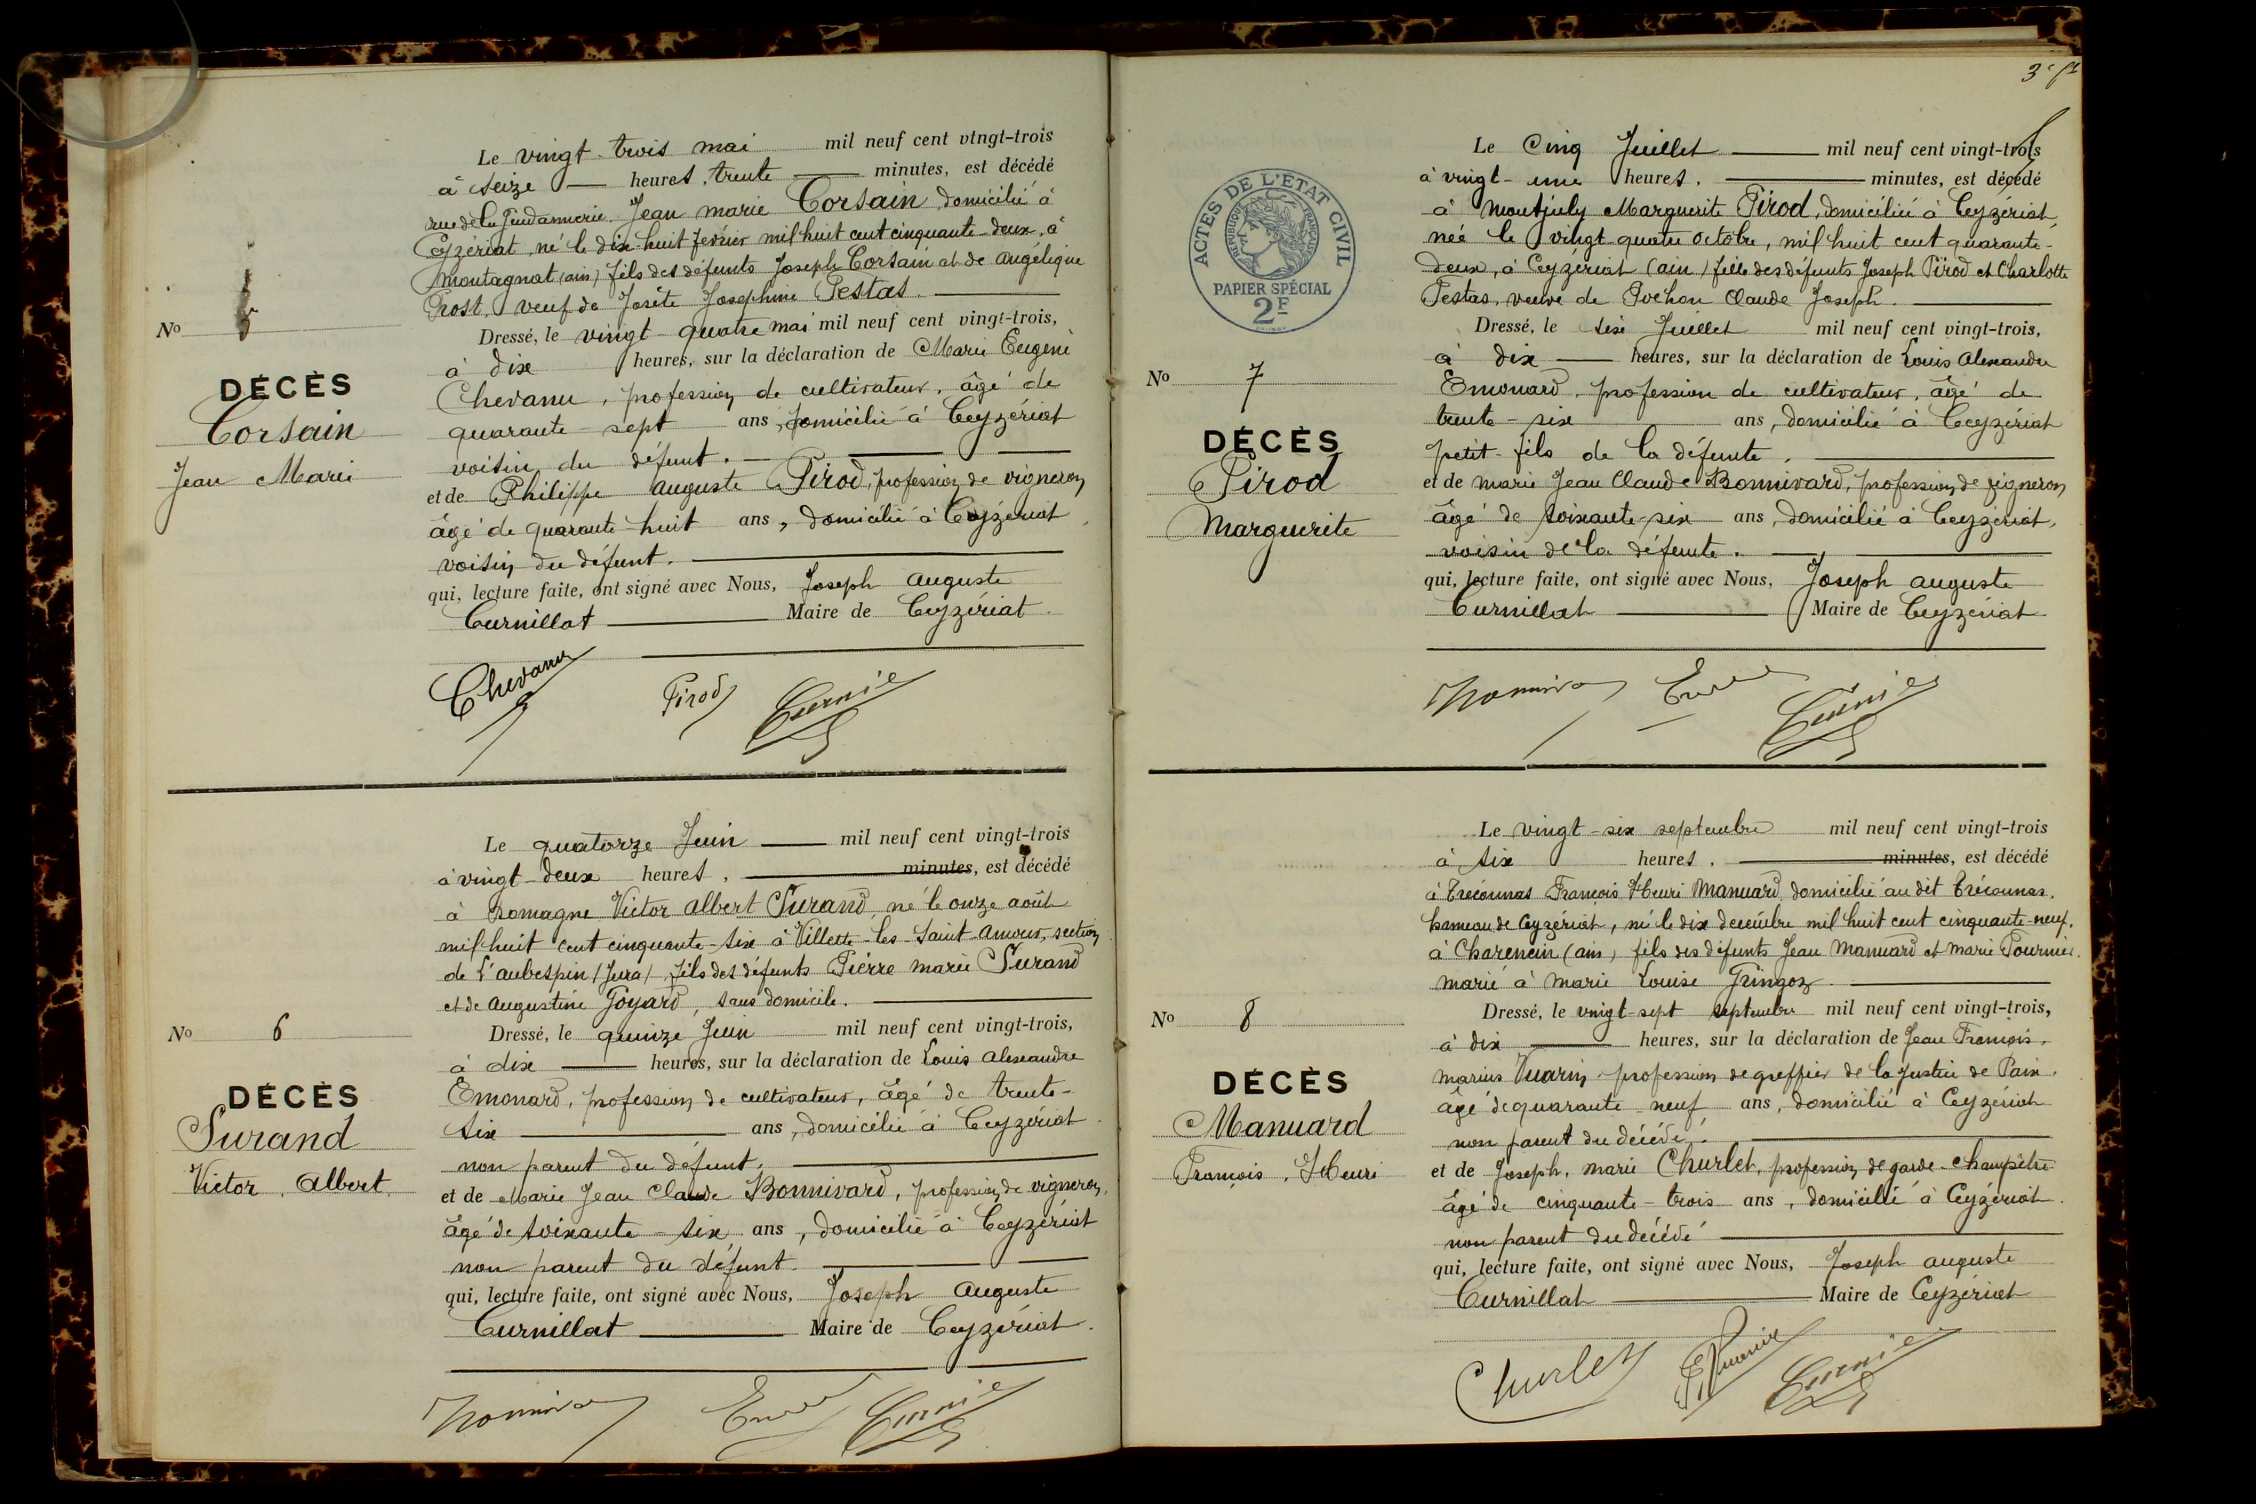 Le vingt-trois mai mil neuf cent vingt-trois
à seize heures, trente minutes, est décédé
rue de la Gendarmerie Jean marie Corsain, domicilié à
Ceyzériat, né le dix-huit février mil huit cent cinquante-deux, à
Montagnat (ain) fils des défunts Joseph Corsain et de angélique
Prost, veuf de Josète Josephine Pestas.
Dressé, le vingt-quatre mai mil neuf cent vingt-trois,
à dix heures, sur la déclaration de Marie Eugène
Chevanu, profession de cultivateur, âgé de
quarante-sept ans, domicilié à Ceyzériat
voisin du défunt.
et de Philippe auguste Pirod, profession de vigneron
âgé de quarante-huit ans, domicilié à Ceyzériat
voisin du défunt.
qui, lecture faite, ont signé avec Nous, Joseph auguste
Curnillat Maire de Ceyzériat.
No 5
DÉCÈS
Corsain
Jean Marie
Chevanu Pirod
Le quatorze Juin mil neuf cent vingt-trois
à vingt-deux heures, minutes, est décédé
à Romagne Victor albert Surand, né le onze août
mil huit cent cinquante-six à Villette-les-Saint-Amour, section
de l'aubespin (Jura) fils des défunts Pierre marie Surand
et de augustine Goyard, sans domicile.
Dressé, le quinze Juin mil neuf cent vingt-trois,
à dix heures, sur la déclaration de Louis alexandre
Emonard, profession de cultivateur, âgé de trente-
six ans, domicilié à Ceyzériat
non parent du défunt.
et de Marie Jean Claude Bonnivard, profession de vigneron,
âgé de soixante-six ans, domicilié à Ceyzériat
non parent du défunt.
qui, lecture faite, ont signé avec Nous, Joseph auguste
Curnillat Maire de Ceyzériat.
No 6
DÉCÈS
Surand
Victor, Albert
3e ft
ACTES DE L'ÉTAT CIVIL
RÉPUBLIQUE FRANÇAISE
PAPIER SPÉCIAL
2F
Le Cinq Juillet mil neuf cent vingt-trois
à vingt-une heures, minutes, est décédé
à Montjuly Marguerite Pirod, domiciliée à Ceyzériat,
née le vingt-quatre octobre, mil huit cent quarante-
deux, à Ceyzériat (ain) fille des défunts Joseph Pirod et Charlotte
Pestas, veuve de Pochon Claude Joseph.
Dressé, le six Juillet mil neuf cent vingt-trois,
à dix heures, sur la déclaration de Louis alexandre
Emonard, profession de cultivateur, âgé de
trente-six ans, domicilié à Ceyzériat
petit-fils de la défunte.
et de marie Jean Claude Bonnivard, profession de vigneron
âgé de soixante-six ans, domicilié à Ceyzériat,
voisin de la défunte.
qui, lecture faite, ont signé avec Nous, Joseph auguste
Curnillat Maire de Ceyzériat
No 7
DÉCÈS
Pirod
Marguerite
Le vingt-six septembre mil neuf cent vingt-trois
à six heures, minutes, est décédé
à Tréconnas François Henri Manuard, domicilié au dit Tréconnas,
hameau de Ceyzériat, né le dix décembre mil huit cent cinquante-neuf,
à Charencin (ain) fils des défunts Jean Manuard et Marie Fournier,
marié à Marie Louise Gringoz
Dressé, le vingt-sept septembre mil neuf cent vingt-trois,
à dix heures, sur la déclaration de Jean François,
marius Vuarin profession de greffier de la Justice de Paix,
âgé de quarante-neuf ans, domicilié à Ceyzériat
non parent du décédé.
et de Joseph, marie Churlet, profession de garde-champêtre
âgé de cinquante-trois ans, domicilié à Ceyzériat.
non parent du décédé
qui, lecture faite, ont signé avec Nous, Joseph auguste
Curnillat Maire de Ceyzériat
No 8
DÉCÈS
Manuard
François, Henri
Churlet